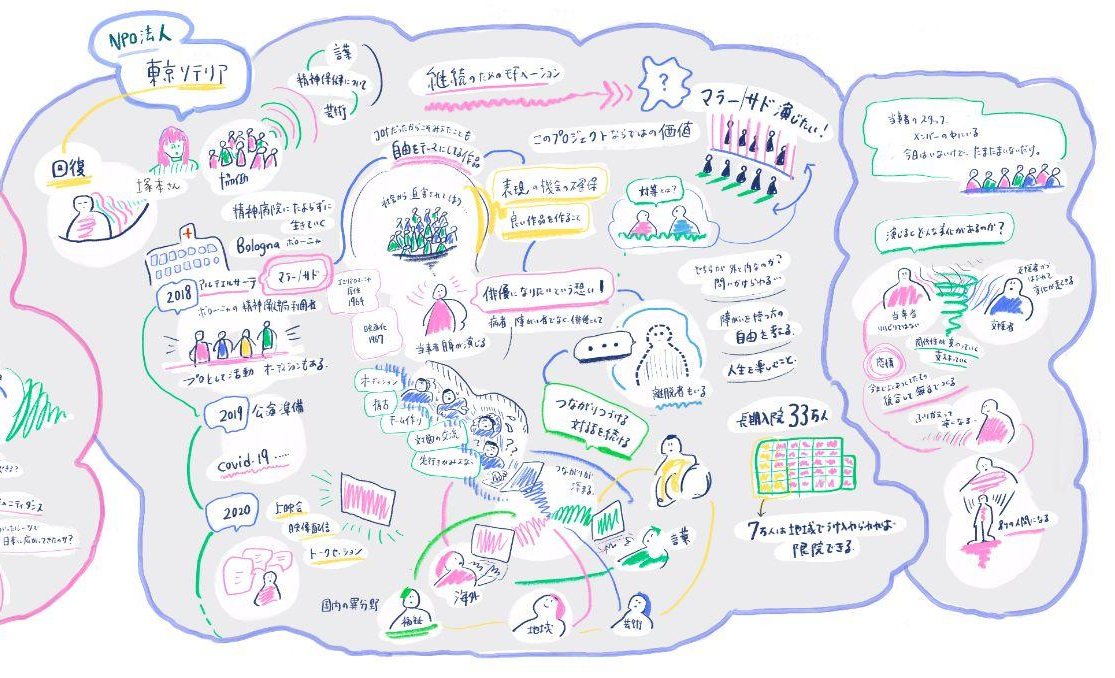 NPO法人
東京ソテリア
回復
塚本さん
言葉
精神保健について
芸術
継続のためのモチベーション
?
マラー/サド演じたい!
このプロジェクトならではの価値
コロナだったからこそみえたことも
自由をテーマにしてる作品
精神病院にたよらずに
生きていく
Bologna ボローニャ
社会から
表現の機会の確保
良い作品を作ること
対等とは?
2018
アルテエルサーテ
マラー/サド
ボローニャの精神
プロとして活動 オーディションもある。
1964
映画化
1967
俳優になりたいという想い!
病者、障がい者でなく、俳優として
当事者自身が演じる
どちらが外で内なのか?
問いかけられる…
障がいを持つ方の
自由を考える。
人生を楽しむこと。
離脱者もいる
つながりつづける
対話を続ける
オーディション
稽古
チーム作り
対面の交流
先行きがみえない
2019 公演準備
covid-19 ……
2020
上映会
映像配信
トークセッション
国内の異分野
福祉
海外
地域
芸術
言葉
つながりが
深まる
長期入院 33万人
7万人は地域でうけ入れられれば
退院できる。
当事者のスタッフ
メンバーの中にいる
今日はいないけど、たまたまいないだけ。
演じるとどんな変化があるのか?
当事者
支援者
関係性が変わっていく
感情
ふりかえって
楽になる…
1人の人間になる